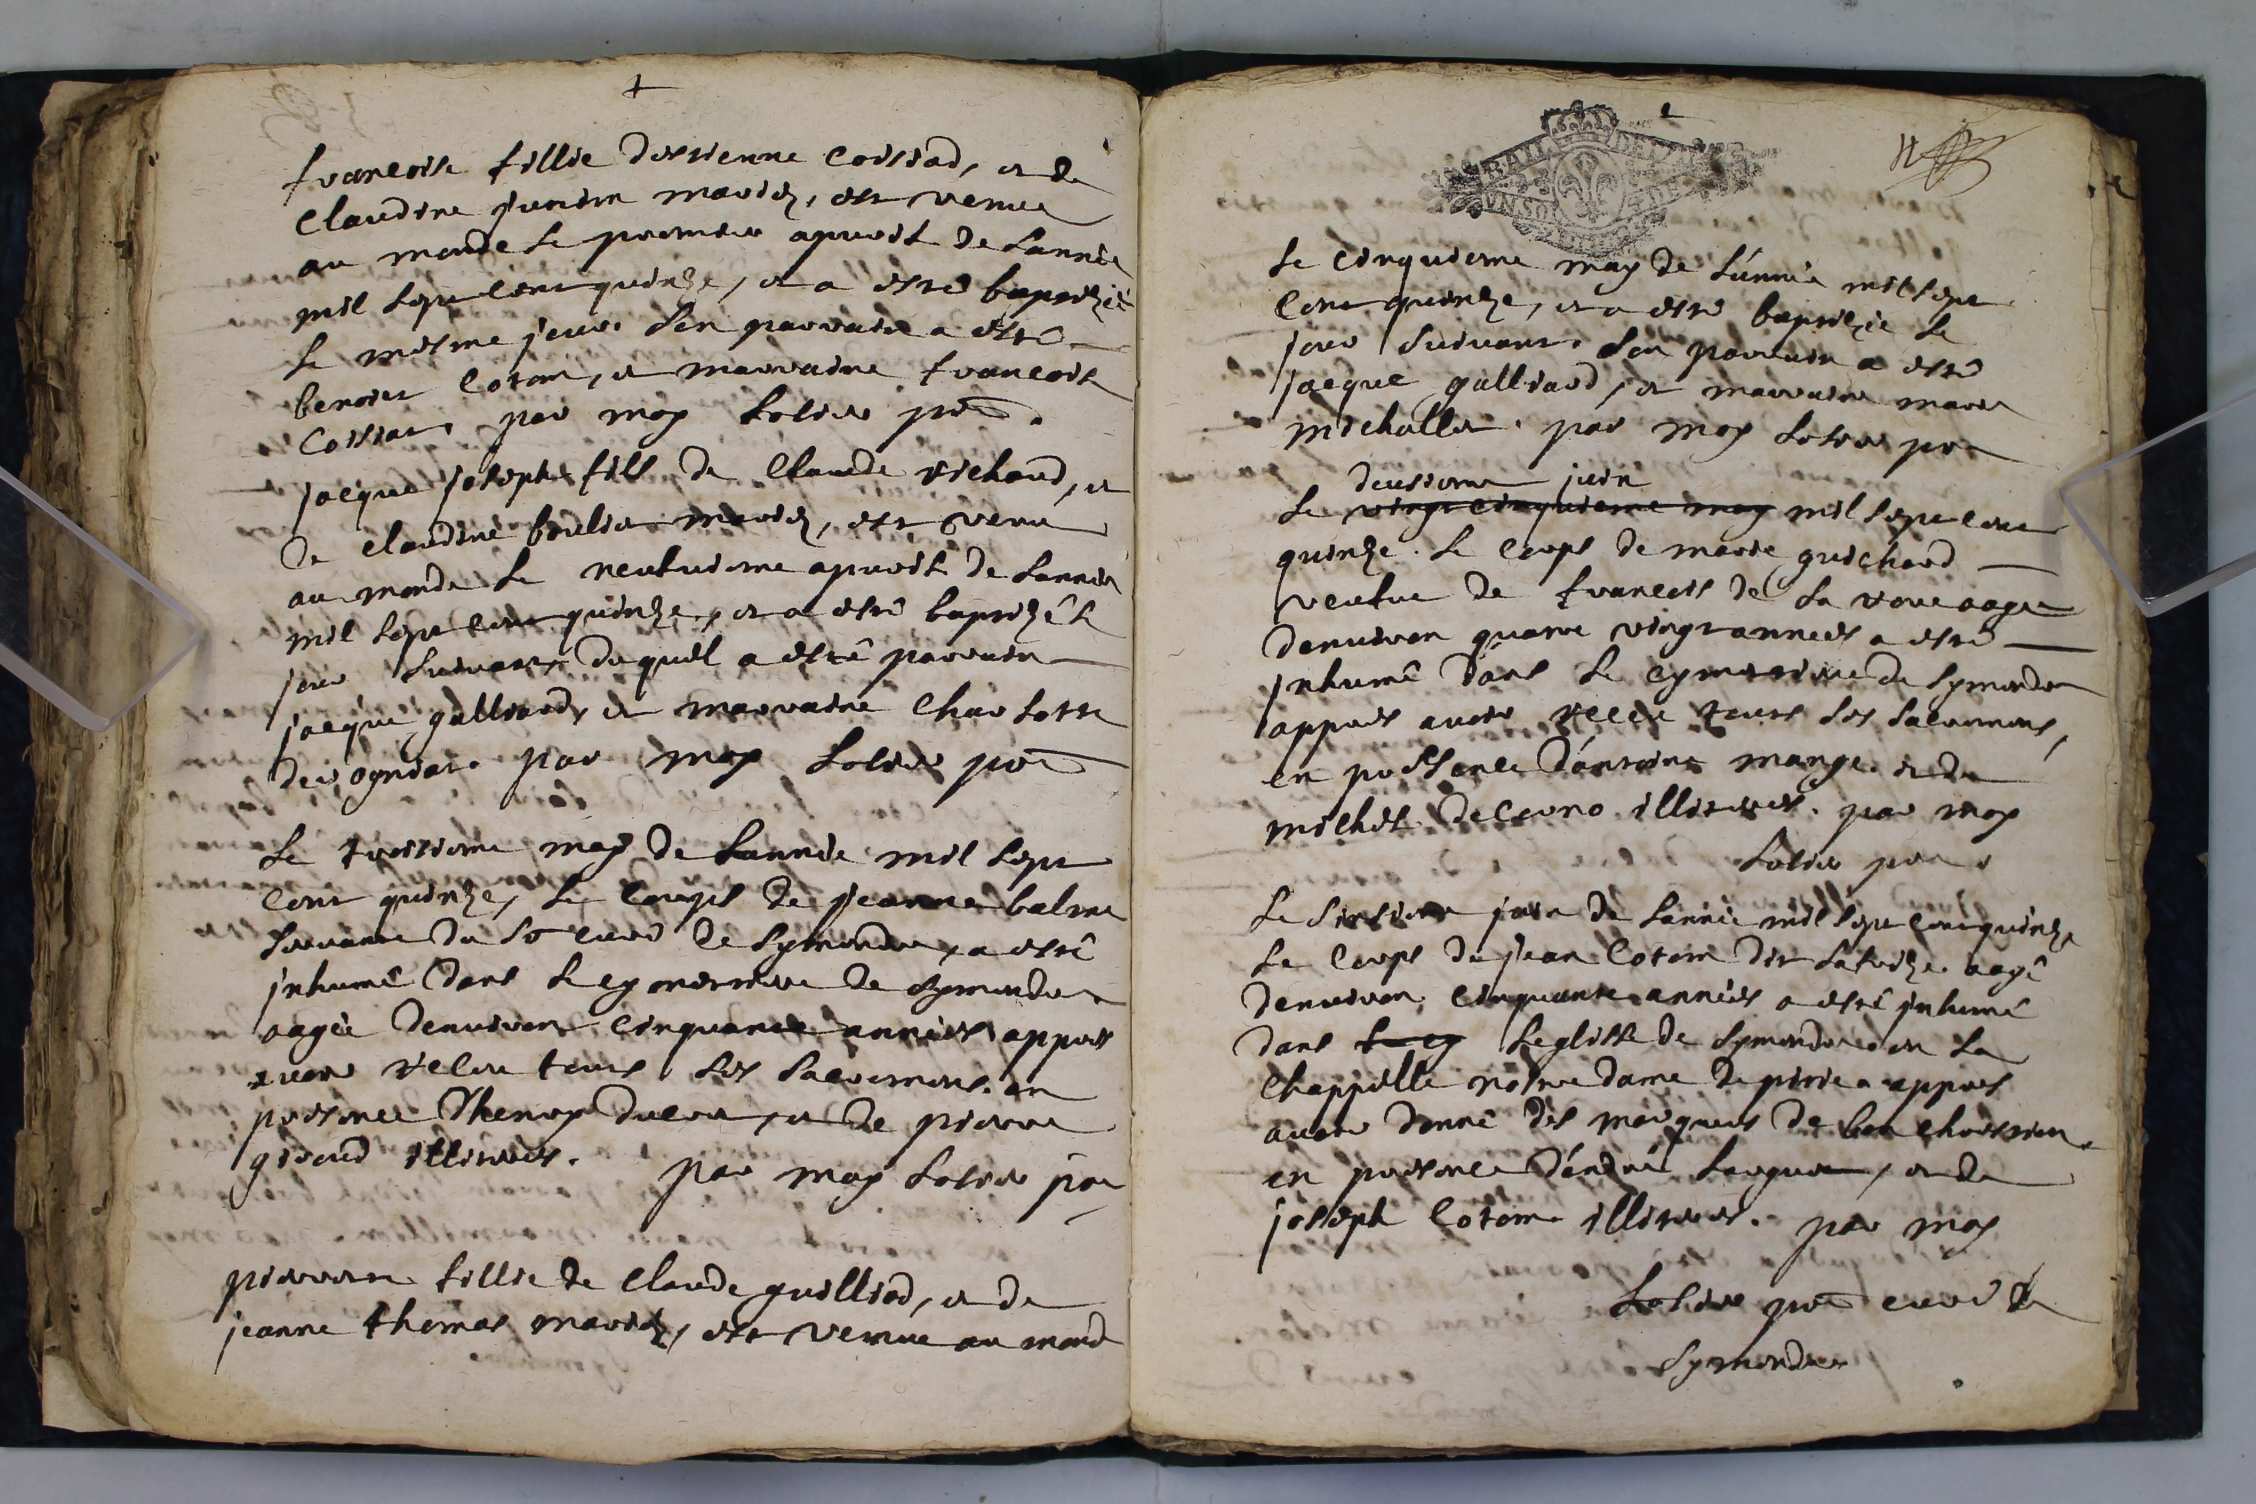 francoise fillie destienne coissad, et de
claudine mariéz, est venue
au monde le premier apvril de lannée
mil sept cent quinze, et a esté baptizée
le mesme jour. son parrain a esté
benoist cotton, et marraine francoise
Coissat. par moy pre.
jacque joseph fils de claude richard, et
de claudine mariéz, est venu
au monde le neufviesme apvril de lannée
mil sept cent quinze, et a esté baptizé le
jour suivant duquel a esté parrain
jacque galliard, et marraine charlotte
par moy pre
Le troisiesme may de lannée mil sept
cent quinze, le corps de jeanne balme
servante du sr curé de Symandre, a esté
inhumé dans le cymestiere de Symandre
aagée denviron cinquante années, appres
avoir receu tous les sacremens. en
presence dhenry et de pierre
giraud illiterés. par moy pre
fillie de claude guilliad, et de
jeanne thomas mariéz, est venue au mond
2
GE
Le cinquiesme may de lannée mil sept
cent quinze, et a esté baptizée le
jour suivant. son parrain a esté
jacque galliard, et marraine marie
michallet. par moy pre
deusiesme juin
Le vingt cinquiesme may mil sept cent
quinze. le corps de marie guichard
veufve de francois de la roue aagée
denviron quatre vingt années a esté
inhumé dans le cymestiere de Symandre
appres avoir receu tous les sacremens,
en presence dantoine mange et de
michel illiterés. par moy
pre
Le sixsiesme juin de lannée mil sept cent quinze
le corps de jean cotton dit aagé
denviron cinquante années a esté inhumé
dans le cy leglisse de Symandre en la
chappelle nostre dame de pitié. appres
avoir donné des marques de bon chrestien.
en presence dandré et de
joseph cotton illiterés. par moy
pre curé de
Symandre